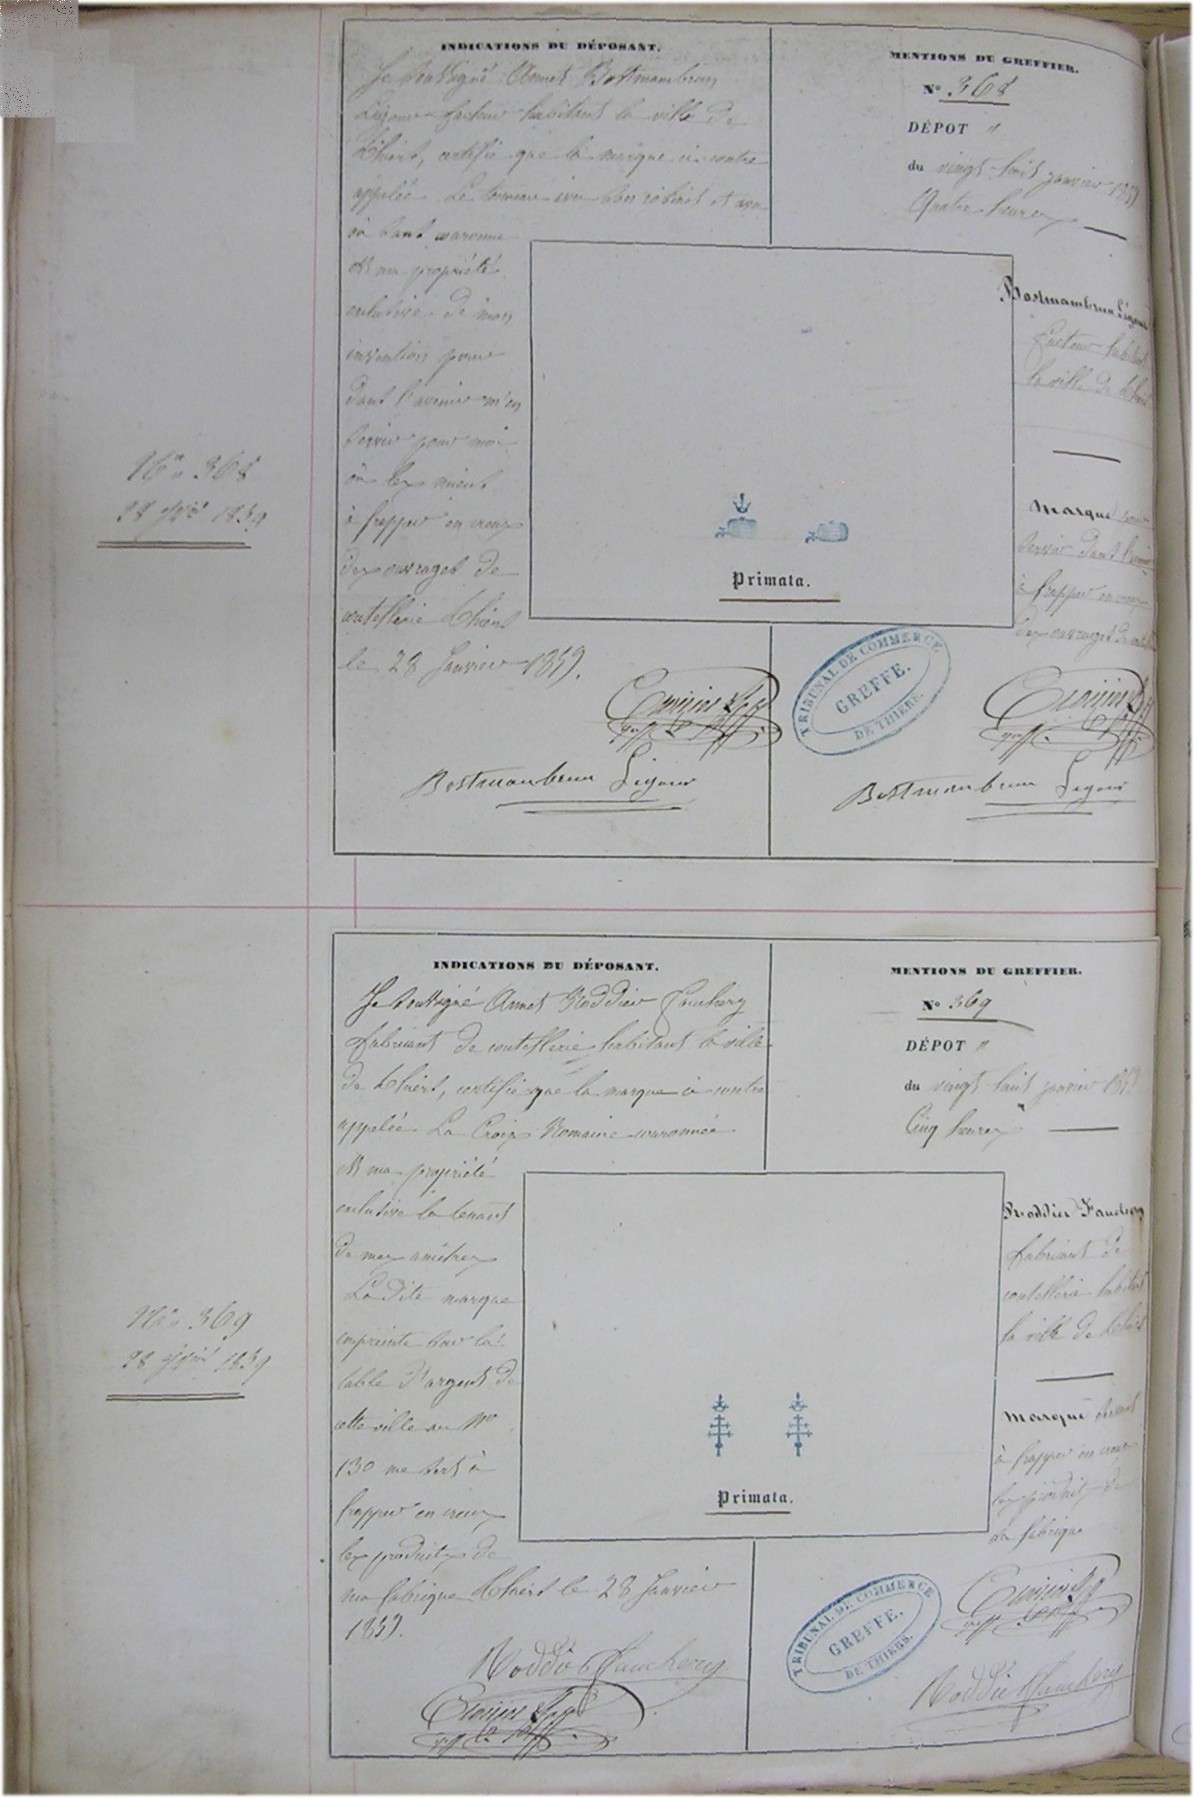 Nº 368
28 jvier 1859
INDICATIONS DU DÉPOSANT.
Je soussigné Annet Bostmambrun
Ligour facteur habitant la ville de
Thiers, certifie que la marque ci contre
appelée Le tonneau avec son robinet et
ou sans couronne
est ma propriété
exclusive de mon
invention pour
dans l'avenir m'en
servir pour moi
ou les miens
à frapper en creux
des ouvrages de
coutellerie Thiers
le 28 Janvier 1859.
Bostmambrun Ligour
MENTIONS DU GREFFIER.
Nº 368
DÉPOT "
du vingt huit janvier 1859
Quatre heures
Bostmambrun Ligour
facteur habitant
la ville de Thiers
Marque pour
servir dans l'avenir
à frapper en creux
des ouvrages de
Primata.
TRIBUNAL DE COMMERCE
GREFFE.
DE THIERS.
Bostmambrun Ligour
Nº 369
28 jvier 1859
INDICATIONS DU DÉPOSANT.
Je soussigné Annet Roddier Fauchery
fabricant de coutellerie habitant la ville
de Thiers, certifie que la marque ci contre
appelée La Croix Romaine couronnée
est ma propriété
exclusive la tenant
de mes ancêtres
La dite marque
empreinte sur la
table d'argent de
cette ville au Nº
130 me sert à
frapper en creux
les produits de
ma fabrique Thiers le 28 Janvier
1859.
Roddier Fauchery
MENTIONS DU GREFFIER.
Nº 369
DÉPOT "
du vingt huit janvier 1859
Cinq heures
Roddier Fauchery
fabricant de
coutellerie habitant
la ville de Thiers
Marque servant
à frapper en creux
les produits de
sa fabrique
Primata.
TRIBUNAL DE COMMERCE
GREFFE.
DE THIERS.
Roddier Fauchery